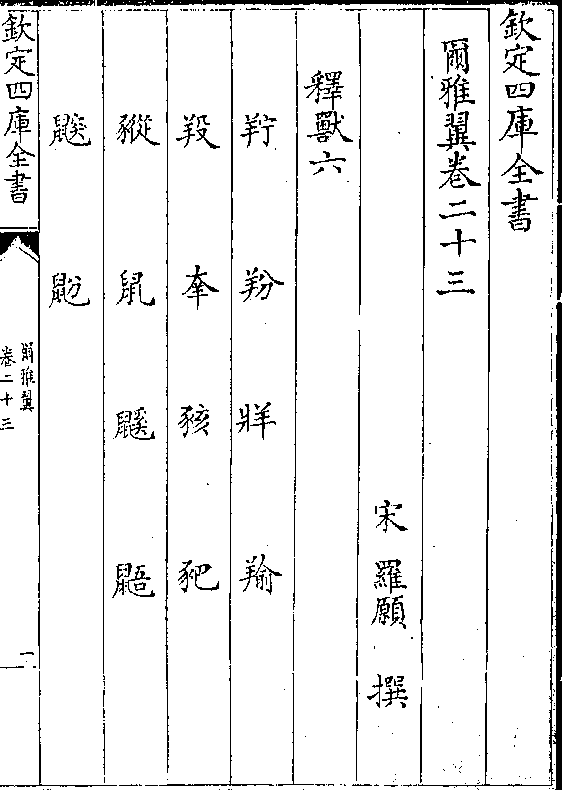 欽定四庫全書
爾雅翼卷二十三
宋 羅願 撰
釋獸六
羜 羒 牂 羭
羖 羍 豥 豝
豵 鼠 鼷 鼯
鼵 鼢
欽定四庫全書
爾雅翼
卷二十三
一